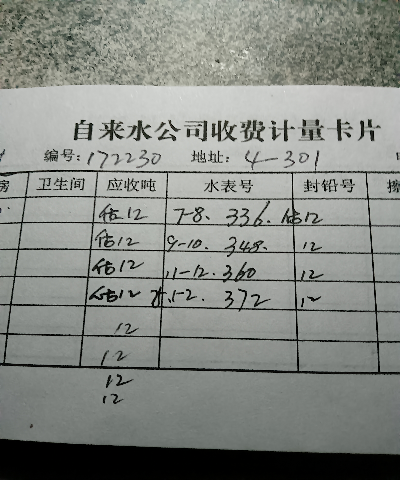 自来水公司收费计量卡片
编号: 172230 地址: 4-301
房 卫生间 应收吨 水表号 封铅号
估12 7-8. 336. 估12
估12 9-10. 348. 12
估12 11-12. 360 12
估12 1-2. 372 12
12
12
12
12